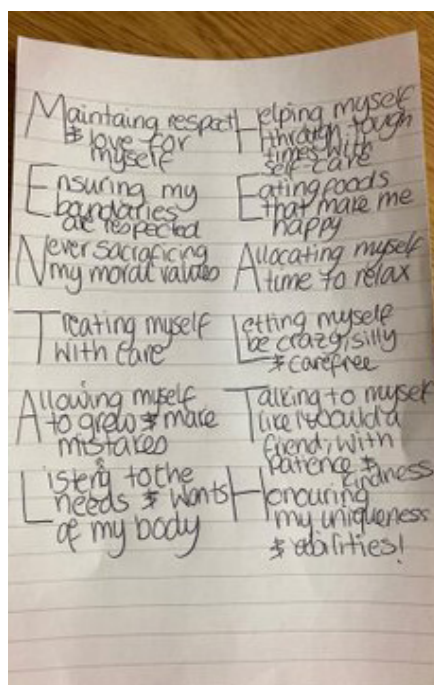 Maintaing respect
& love for
myself
Ensuring my
boundaries
are respected
Never sacraficing
my moral values
Treating myself
with care
Allowing myself
to grow & make
mistakes
Listening to the
needs & wants
of my body
Helping myself
through tough
times with
self-care
Eating foods
that make me
happy
Allocating myself
time to relax
Letting myself
be crazy, silly
& carefree
Talking to myself
like I would a
friend, with
patience &
kindness
Honouring
my uniqueness
& abilities!